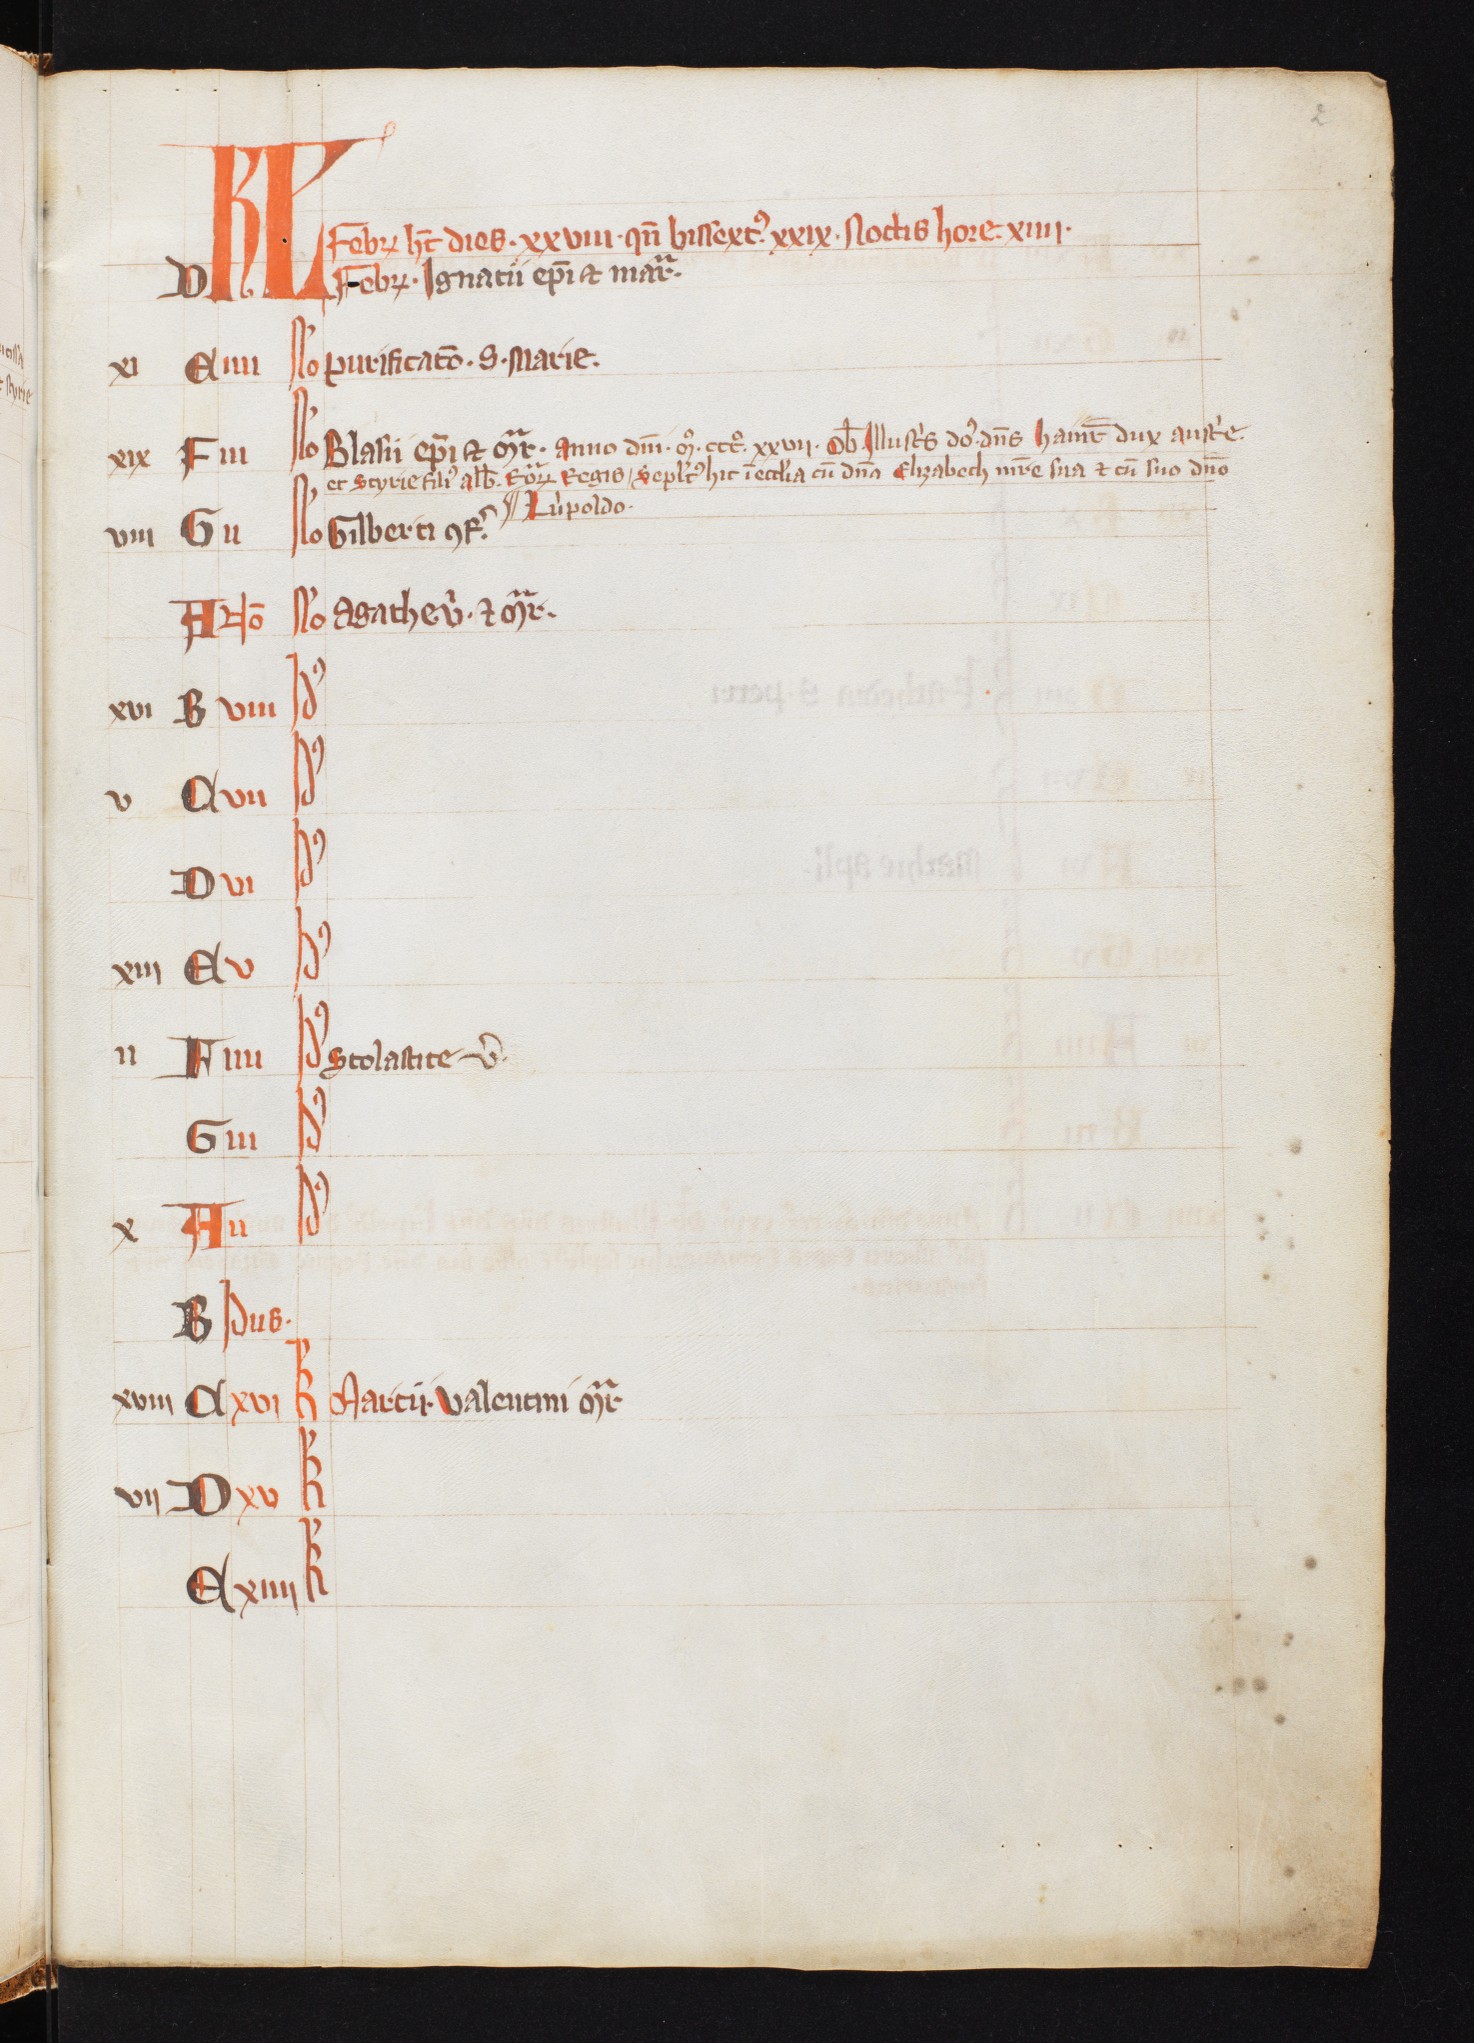 2
KL Febrꝝ hꝫ dies · xxviii · qn̄ bissextꝰ xxix · Noctis hore xiiii ·
D Febrꝝ · Ignatii ep̄i ⁊ mar̄ ·
xi E iiii No Purificatō · S · Marie ·
xix F iii No Blasii ep̄i ⁊ mr̄ · Anno dn̄i · mͦ · cccͦ · xxvii · Ob̄ Illustˢ dn̄s hainr̄ dux austˢe ·
et Styrie filiꝰ alb̄ · Romꝝ Regis / sepltꝰ hic ī eccl̄ia cū dn̄a Elizabech mr̄e sua ⁊ cū suo dn̄o
Lu̇poldo ·
viii G ii No Gilberti ꝯf̄ ·
A No Agathe v̄ · ⁊ mr̄ ·
xvi B viii Idꝰ
v C vii Idꝰ
D vi Idꝰ
xiii E v Idꝰ
ii F iiii Idꝰ Scolastice v̄ ·
G iii Idꝰ
x A ii Idꝰ
B Idus ·
xviii C xvi K Marcii · Valentini mr̄
vii D xv K
E xiiii K